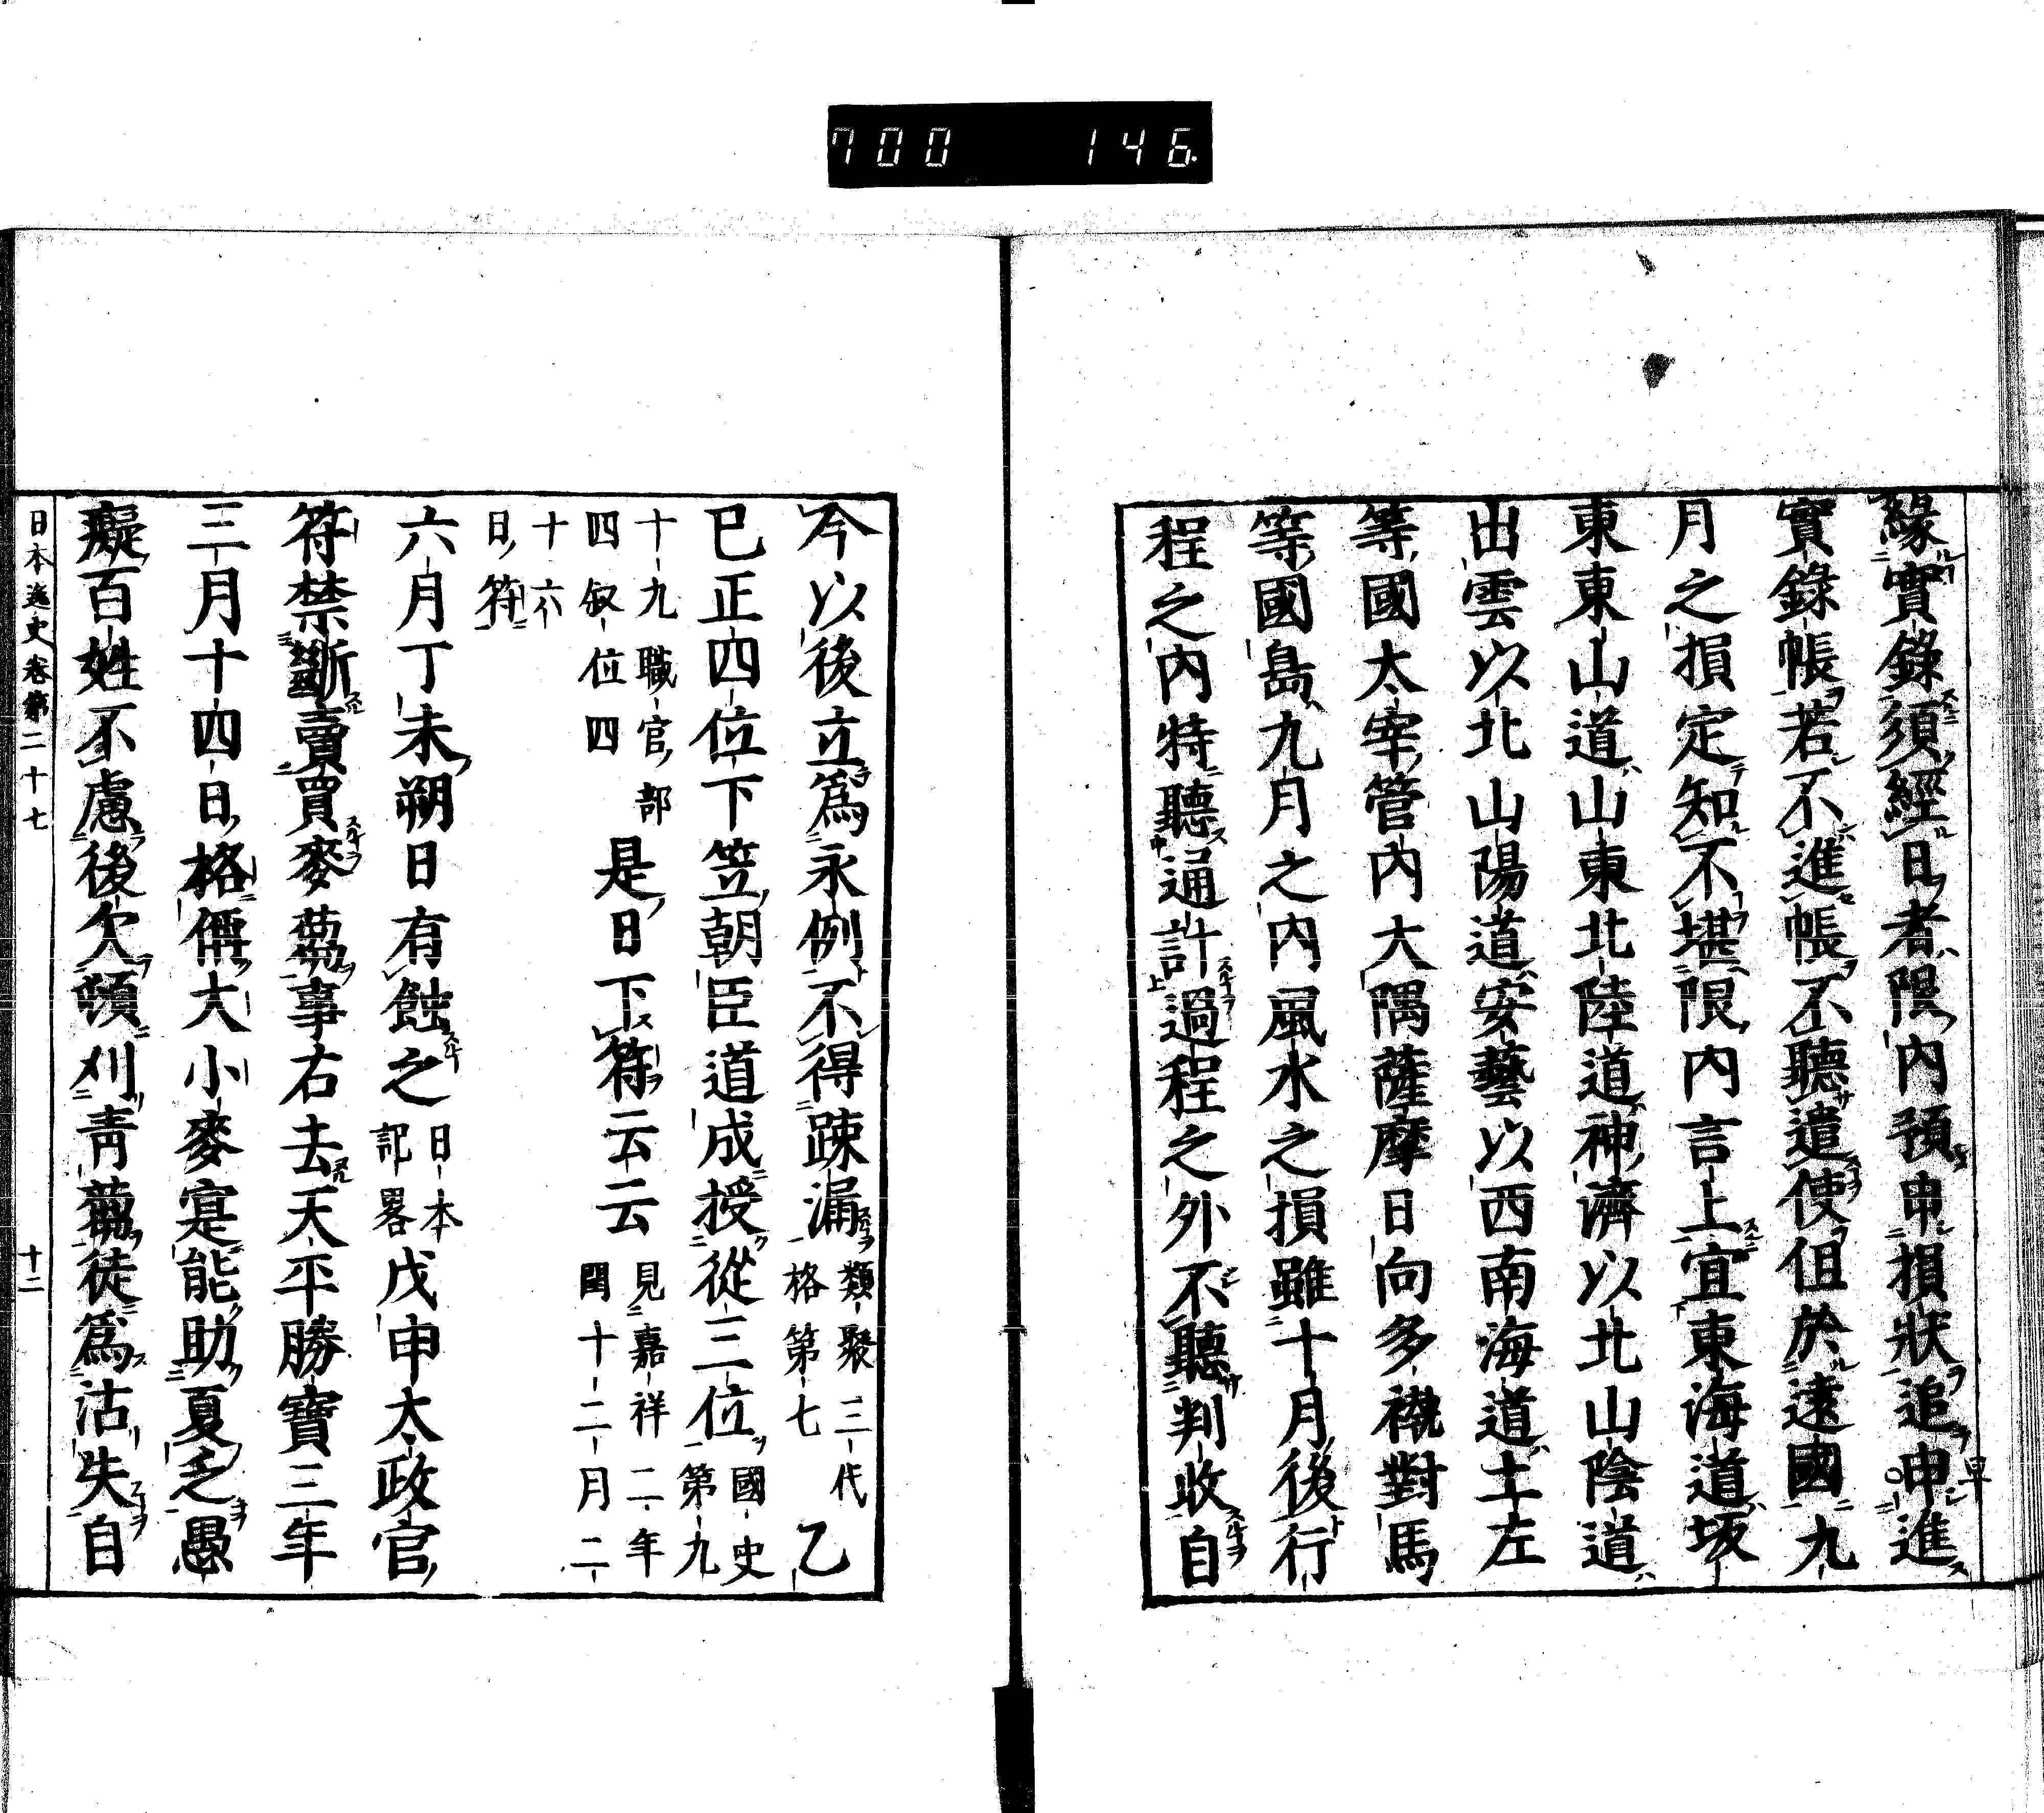 700 146
緣實錄須經日者限內預申損狀追申進
實錄帳若不進帳不聽遣使但於遠國九
月之損定知不堪限內言上宜東海道坂
東東山道山東北陸道神濟以北山陰道
出雲以北山陽道安藝以西南海道土左
等國太宰管內大隅薩摩日向多褹對馬
等國島九月之內風水之損雖十月後行
程之內特聽通計過程之外不聽判收自
今以後立爲永例不得踈漏類聚三代格第七乙
巳正四位下笠朝臣道成授從三位國史第九
十九職官部四叙位四是日下符云云見嘉祥二年閏十二月二
十六日符
六月丁未朔日有蝕之日本記畧戊申太政官
符禁斷賣買麥蒭事右去天平勝寶三年
三月十四日格偁大小麥寔能助夏乏愚
癡百姓不慮後欠頓刈青蒭徒爲沽失自
日本逸史卷第二十七 十二